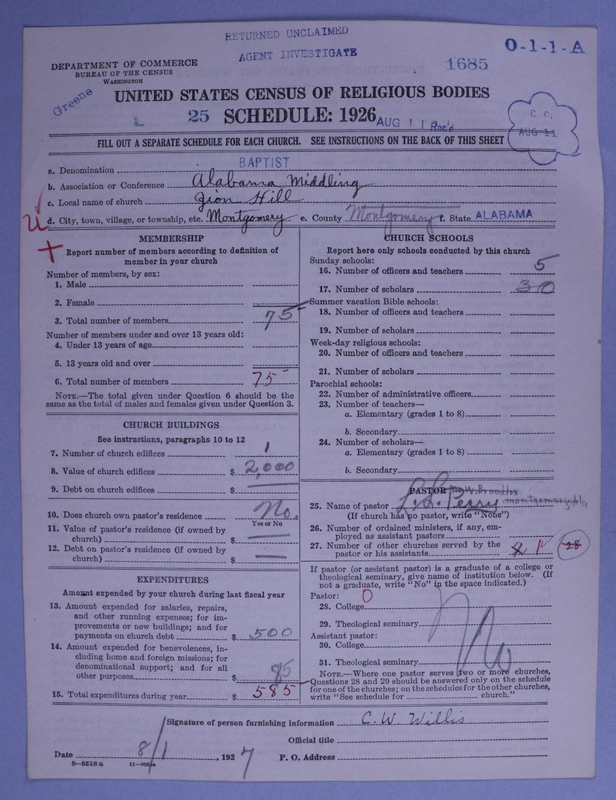 RETURNED UNCLAIMED
AGENT INVESTIGATE
O-1-1-A
1685
DEPARTMENT OF COMMERCE
BUREAU OF THE CENSUS
WASHINGTON
Greene
UNITED STATES CENSUS OF RELIGIOUS BODIES
L 25 SCHEDULE: 1926 AUG 11 Rec'd
C. C.
AUG 11
FILL OUT A SEPARATE SCHEDULE FOR EACH CHURCH. SEE INSTRUCTIONS ON THE BACK OF THIS SHEET
a. Denomination BAPTIST
b. Association or Conference Alabama Middling
c. Local name of church Zion Hill
d. City, town, village, or township, etc. Montgomery e. County Montgomery f. State ALABAMA
MEMBERSHIP
Report number of members according to definition of
member in your church
Number of members, by sex:
1. Male
2. Female
3. Total number of members 75
Number of members under and over 13 years old:
4. Under 13 years of age
5. 13 years old and over
6. Total number of members 75
NOTE.—The total given under Question 6 should be
same as the total of males and females given under Question 3.
CHURCH BUILDINGS
See instructions, paragraphs 10 to 12
7. Number of church edifices 1
8. Value of church edifices $ 2,000
9. Debt on church edifices $
10. Does church own pastor's residence No.
Yes or No
11. Value of pastor's residence (if owned by
church) $ —
12. Debt on pastor's residence (if owned by
church) $ —
EXPENDITURES
Amount expended by your church during last fiscal year
13. Amount expended for salaries, repairs,
and other running expenses; for im-
provements or new buildings; and for
payments on church debt $ 500
14. Amount expended for benevolences, in-
cluding home and foreign missions; for
denominational support; and for all
other purposes $ 85
15. Total expenditures during year $ 585
CHURCH SCHOOLS
Report here only schools conducted by this church
Sunday schools:
16. Number of officers and teachers 5
17. Number of scholars 30
Summer vacation Bible schools:
18. Number of officers and teachers
19. Number of scholars
Week-day religious schools:
20. Number of officers and teachers
21. Number of scholars
Parochial schools:
22. Number of administrative officers
23. Number of teachers—
a. Elementary (grades 1 to 8)
b. Secondary
24. Number of scholars—
a. Elementary (grades 1 to 8)
b. Secondary
PASTOR
25. Name of pastor Perry
(If church has no pastor, write "None")
26. Number of ordained ministers, if any, em-
ployed as assistant pastors
27. Number of other churches served by the
pastor or his assistants 1 28
If pastor (or assistant pastor) is a graduate of a college or
theological seminary, give name of institution below. (If
not a graduate, write "No" in the space indicated.)
Pastor: O
28. College
29. Theological seminary No
Assistant pastor:
30. College
31. Theological seminary
NOTE.—Where one pastor serves two or more churches,
Questions 28 and 29 should be answered only on the schedule
for one of the churches; on the schedules for the other churches,
write "See schedule for church."
Signature of person furnishing information C. W. Willis
Official title
Date 8/1, 1927 P. O. Address